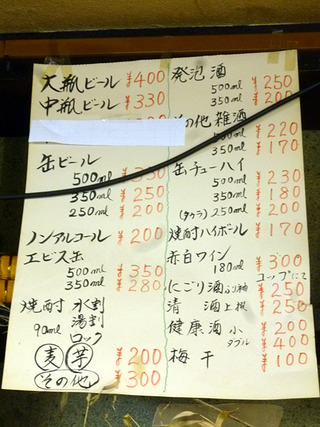 大瓶ビール ¥400
中瓶ビール ¥330
缶ビール
500ml 330
350ml ¥250
250ml ¥200
ノンアルコール ¥200
エビス缶
500ml ¥350
350ml ¥280
焼酎 水割
90ml 湯割
ロック
麦 芋 ¥200
その他 ¥300
発泡酒
500ml ¥250
350ml ¥200
その他 雑酒
¥220
350ml ¥170
缶チューハイ
500ml ¥230
350ml ¥180
(タカラ) 250ml ¥200
焼酎ハイボール ¥170
赤白ワイン ¥300
180ml コップにて
にごり酒 ¥250
清酒 上撰 ¥250
健康酒 小 ¥200
ダブル ¥400
梅干 ¥100